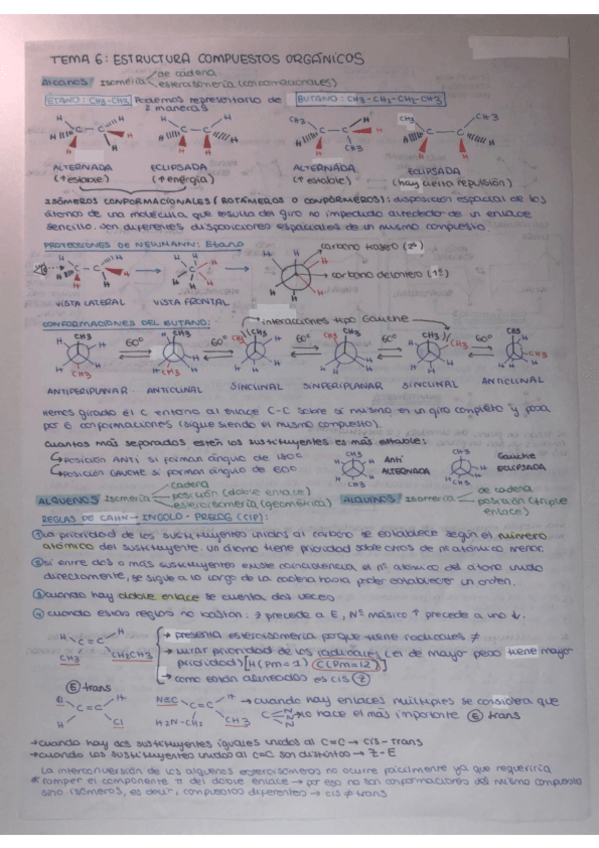 TEMA 6: ESTRUCTURA COMPUESTOS ORGÁNICOS
Alcanos: Isomería de cadena
estereoisomería (conformacionales)
ETANO: CH3-CH3 Podemos representarlo de BUTANO: CH3-CH2-CH2-CH3
2 maneras
ALTERNADA ECLIPSADA ALTERNADA ECLIPSADA
(↑estable) (↑energía) (↑estable) (hay cierta repulsión)
ISÓMEROS CONFORMACIONALES (ROTÁMEROS O CONFÓRMEROS): disposición espacial de los
átomos de una molécula que resulta del giro no impedido alrededor de un enlace
sencillo. Son diferentes disposiciones espaciales de un mismo compuesto.
PROYECCIONES DE NEWMANN: Etano
carbono trasero (2º)
carbono delantero (1º)
VISTA LATERAL VISTA FRONTAL
CONFORMACIONES DEL BUTANO: interacciones tipo Gauche
60º 60º 60º 60º 60º
ANTIPERIPLANAR ANTICLINAL SINCLINAL SINPERIPLANAR SINCLINAL ANTICLINAL
Hemos girado el C entorno al enlace C-C sobre sí mismo en un giro completo y pasa
por 6 conformaciones (sigue siendo el mismo compuesto).
Cuantos más separados estén los sustituyentes es más estable:
↳POSICIÓN ANTI si forman ángulo de 180º
↳POSICIÓN GAUCHE si forman ángulo de 60º
Anti
ALTERNADA
Gauche
ECLIPSADA
ALQUENOS Isomería cadena
posición (doble enlace)
estereoisomería (geométrica)
ALQUINOS Isomería de cadena
posición (triple
enlace)
REGLAS DE CAHN - INGOLD - PRELOG (CIP):
① La prioridad de los sustituyentes unidos al carbono se establece según el número
atómico del sustituyente. Un átomo tiene prioridad sobre otros de nº atómico menor.
② Si entre dos o más sustituyentes existe coincidencia el nº atómico del átomo unido
directamente, se sigue a lo largo de la cadena hasta poder establecer un orden.
③ Cuando hay doble enlace se cuenta dos veces
④ Cuando estas reglas no bastan: Z precede a E, Nº másico ↑ precede a uno ↓.
H H
C=C
CH3 CH2CH3
→ presenta estereoisomería porque tiene radicales ≠
→ mirar prioridad de los radicales (el de mayor peso tiene mayor
prioridad) [H(Pm=1) C(Pm=12)]
→ como están alineados es cis Ⓩ
Ⓔ trans
C=C H
H Cl
N≡C H
C=C
H2N-CH2 CH3
→cuando hay enlaces múltiples se considera que
lo hace el más importante Ⓔ trans
→cuando hay dos sustituyentes iguales unidos al C=C → cis-trans
→cuando los sustituyentes unidos al C=C son distintos → Z-E
La interconversión de los alquenos estereoisómeros no ocurre fácilmente ya que requeriría
* romper el componente π del doble enlace → por eso no son conformaciones del mismo compuesto
sino isómeros, es decir, compuestos diferentes → cis ≠ trans